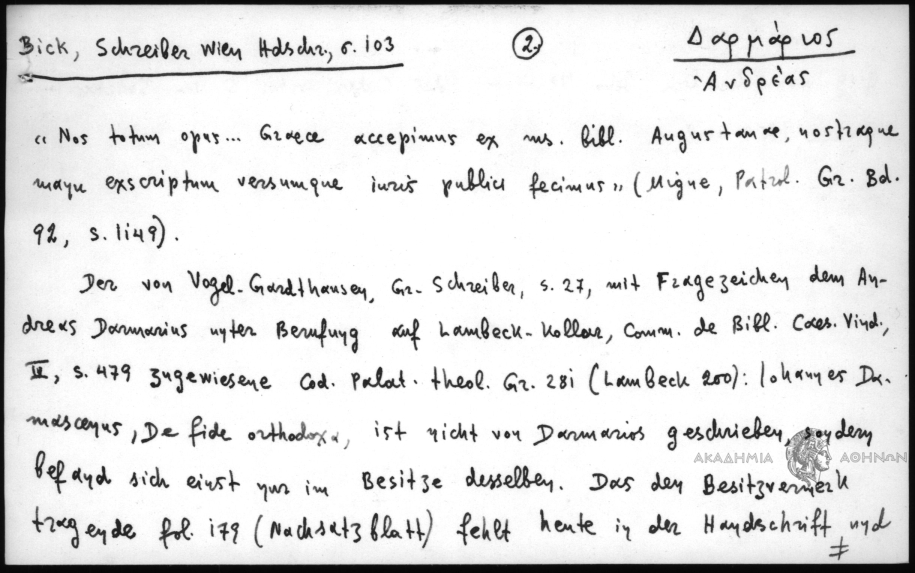 Bick, Schreiber Wien Hdschr., σ. 103
2.
Δαρμάριος
Ἀνδρέας
«Nos totum opus... Graece accepimus ex ms. bibl. Augustanae, nostraque
manu exscriptum versumque iuris publici fecimus» (Migne, Patrol. Gr. Bd.
92, S. 1149).
Der von Vogel-Gardthausen, Gr. Schreiber, S. 27, mit Fragezeichen dem An-
dreas Darmarius unter Berufung auf Lambeck-Kollar, Comm. de Bibl. Caes. Vind.,
S. 479 zugewiesene Cod. Palat. theol. Gr. 281 (Lambeck 200): Iohannes Da-
mascenus, De fide orthodoxa, ist nicht von Darmarios geschrieben, sondern
befand sich einst nur im Besitze desselben. Das den Besitzvermerk
tragende fol. 179 (Nachsatzblatt) fehlt heute in der Handschrift und
‡
ΑΚΑΔΗΜΙΑ ΑΘΗΝΩΝ